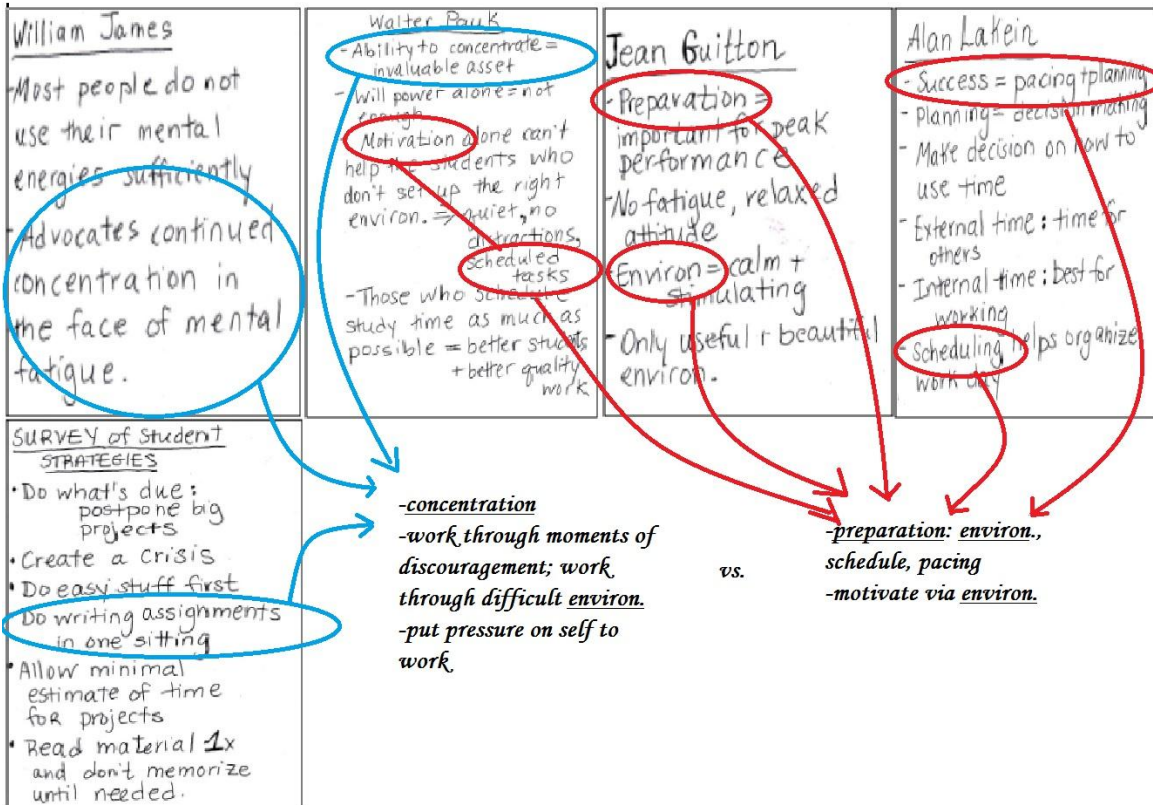 William James
-Most people do not
use their mental
energies sufficiently
-Advocates continued
concentration in
the face of mental
fatigue.
Walter Pauk
-Ability to concentrate =
invaluable asset
-Will power alone = not
enough
-Motivation alone can't
help the students who
don't set up the right
environ. ⇒ quiet, no
distractions,
scheduled
tasks
-Those who schedule
study time as much as
possible = better students
+ better quality
work
Jean Guitton
-Preparation =
important for peak
performance
-No fatigue, relaxed
attitude
-Environ = calm +
stimulating
-Only useful r beautiful
environ.
Alan Lakein
-Success = pacing + planning
-Planning = decision making
-Make decision on how to
use time
-External time: time for
others
-Internal time: best for
working
-Scheduling helps organize
work day
SURVEY of Student
STRATEGIES
• Do what's due:
postpone big
projects
• Create a crisis
• Do easy stuff first
Do writing assignments
in one sitting
• Allow minimal
estimate of time
for projects
• Read material 1x
and don't memorize
until needed.
-concentration
-work through moments of
discouragement; work
through difficult environ.
-put pressure on self to
work
vs.
-preparation: environ.,
schedule, pacing
-motivate via environ.